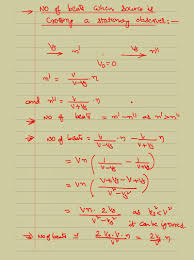 → No of beats when source is
crossing a stationary observer:-
n' n''
V₀ = 0
n' = V/(V-Vs) n
and n'' = V/(V+Vs) n
→ No of beats = n' - n'' as n' > n''
→ No of beats = V/(V-Vs) n - V/(V+Vs) n
= Vn (1/(V-Vs) - 1/(V+Vs))
= Vn (V+Vs-V+Vs / V²-Vs²)
= Vn. 2Vs / V²-Vs² as Vs² < V²
it can be ignored